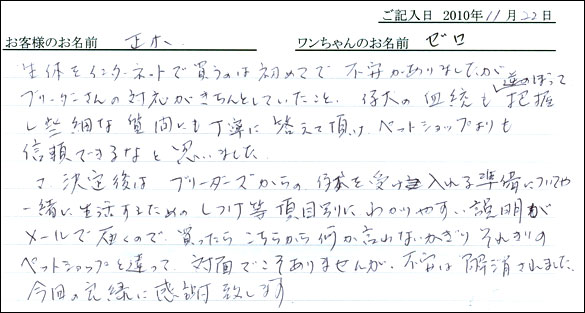 ご記入日 2010年11月22日
お客様のお名前 正木 ワンちゃんのお名前 ゼロ
生体をインターネットで買うのは初めてで 不安がありましたが
ブリーダーさんの対応がきちんとしていたこと、仔犬の血統も 逆のぼって 把握
し些細な質問にも丁寧に答えて頂け、ペットショップよりも
信頼できるなと思いました。
決定後は ブリーダーズからの、仔犬を受け入れる準備についてや
一緒に生活するためのしつけ等項目別にわかりやすい説明が
メールで届くので、買ったらこちらから何か言わないかぎりそれきりの
ペットショップと違って、対面でこそありませんが、不安は解消されました。
今回の良縁に感謝致します